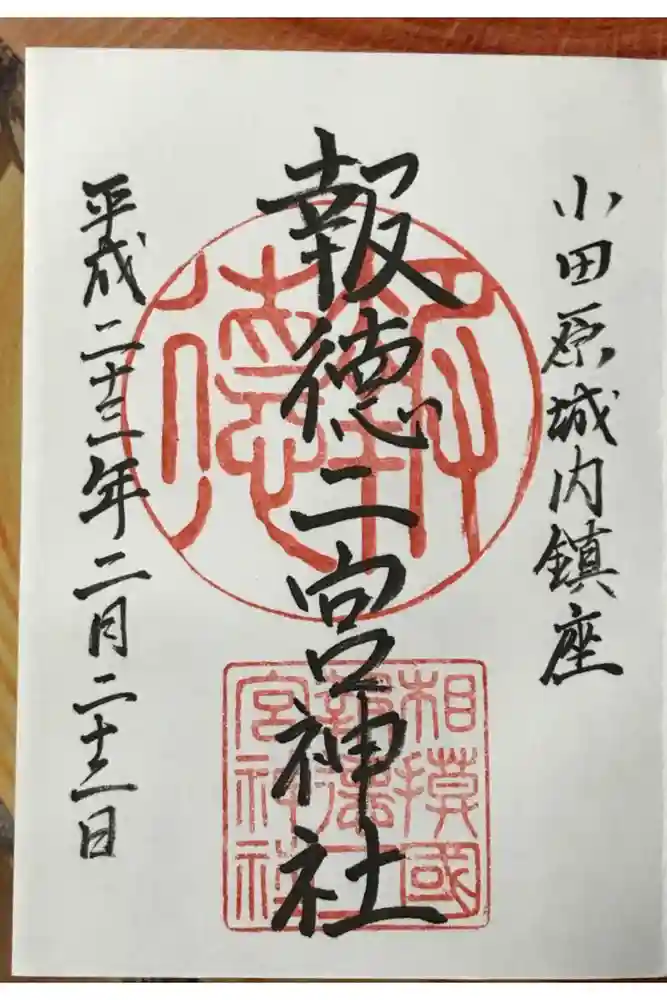 小田原城内鎮座
報徳二宮神社
平成二十三年二月二十二日
報徳
相模國
報徳二
宮神社